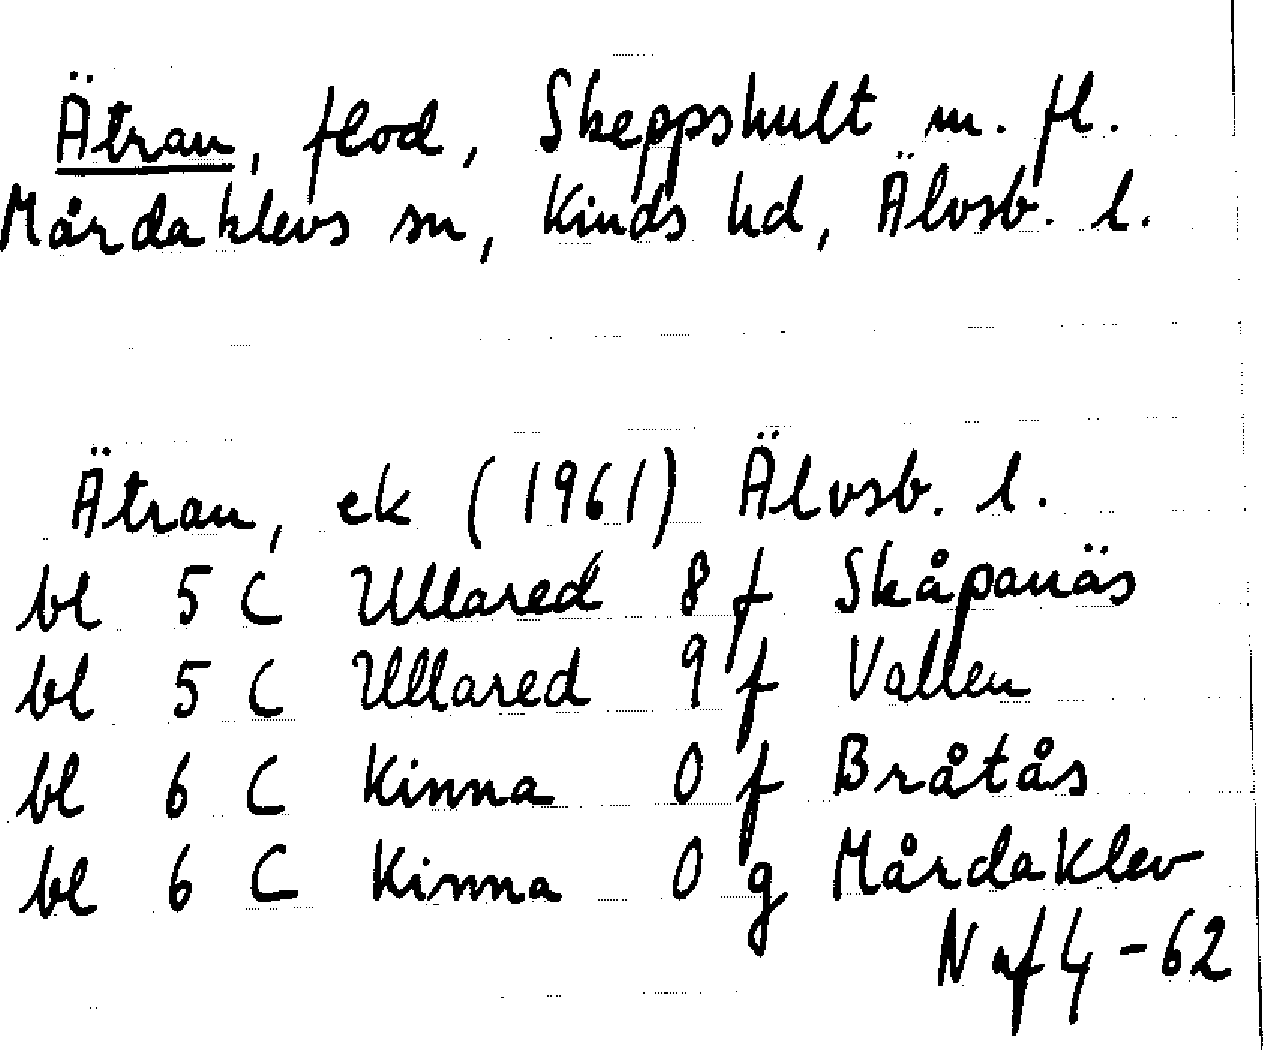 Ätran, flod, Skeppshult m. fl.
Mårdaklevs sn, Kinds hd, Älvsb. l.
Ätran, ek (1961) Älvsb. l.
bl 5 C Ullared 8 f Skåpanäs
bl 5 C Ullared 9 f Vallen
bl 6 C Kinna 0 f Bråtås
bl 6 C Kinna 0 g Mårdaklev
N af 4 -62